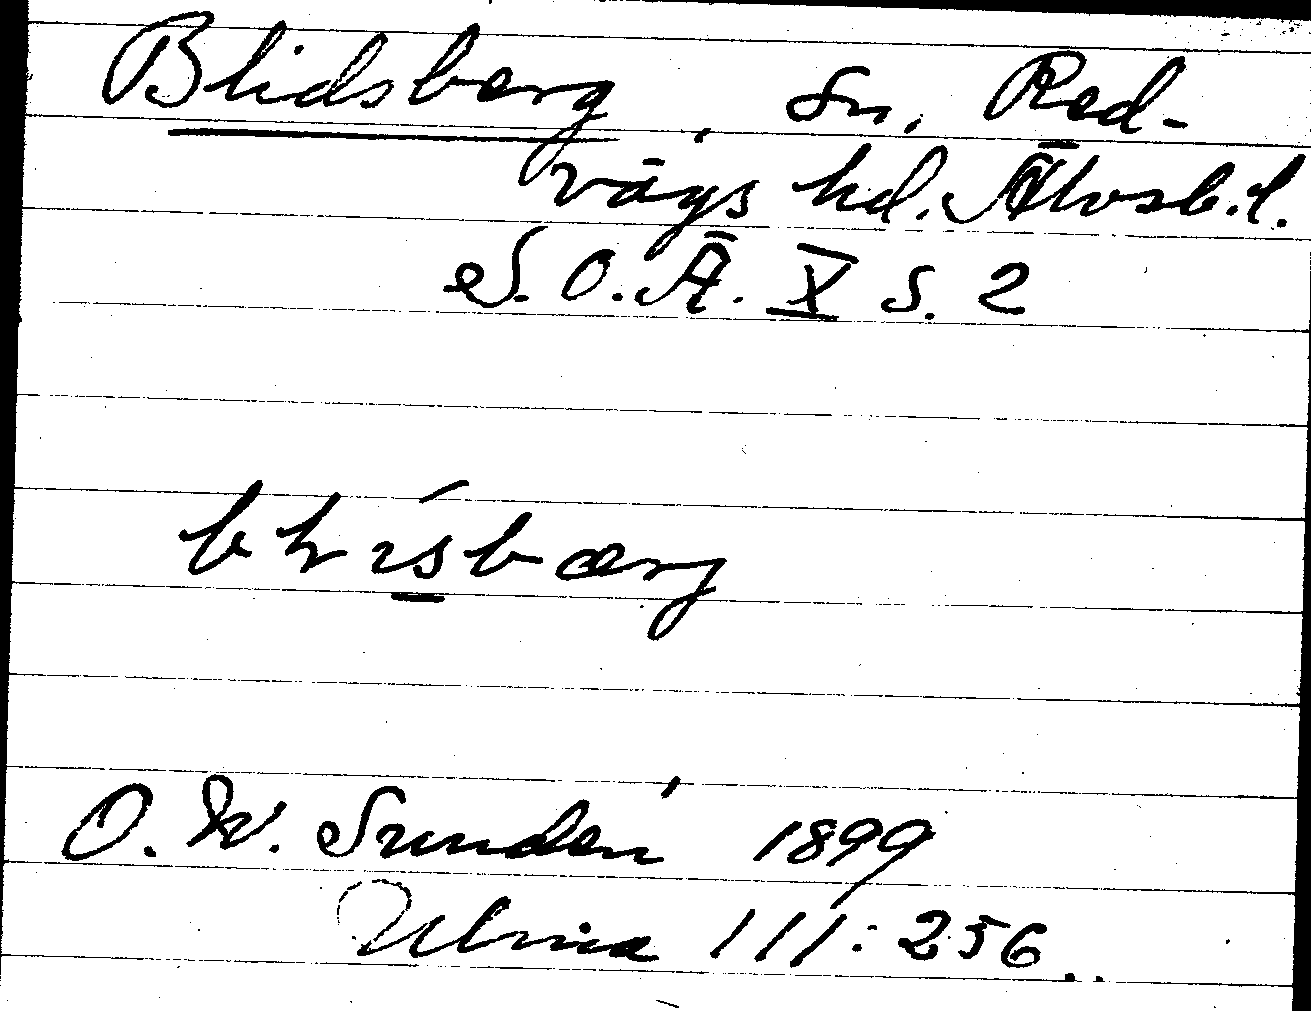 Blidsberg, sn, Red-
vägs hd. Älvsb. l.
S. O. Ä. X S. 2
O. W. Sundén 1899
Ulrica 111:256